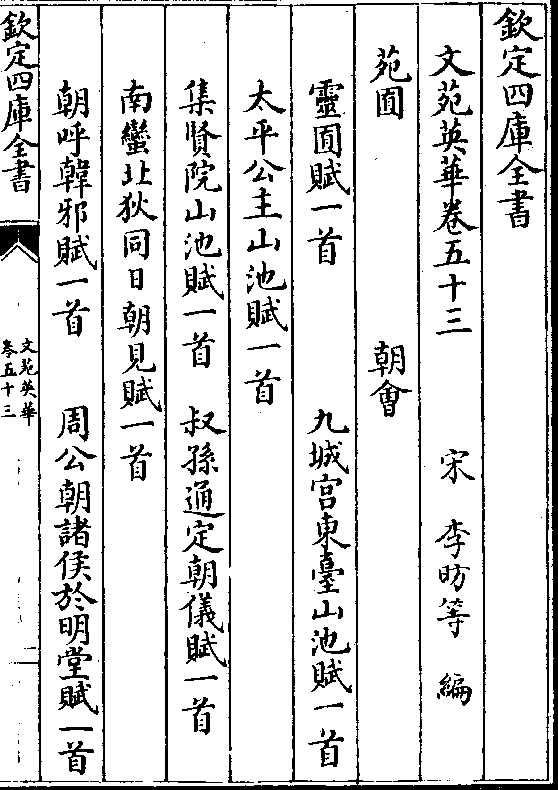 欽定四庫全書
文苑英華卷五十三 宋 李昉等 編
苑囿 朝會
靈囿賦一首 九城宫東臺山池賦一首
太平公主山池賦一首
集賢院山池賦一首 叔孫通定朝儀賦一首
南蠻北狄同日朝見賦一首
朝呼韓邪賦一首 周公朝諸侯於明堂賦一首
欽定四庫全書
文苑英華
卷五十三
一